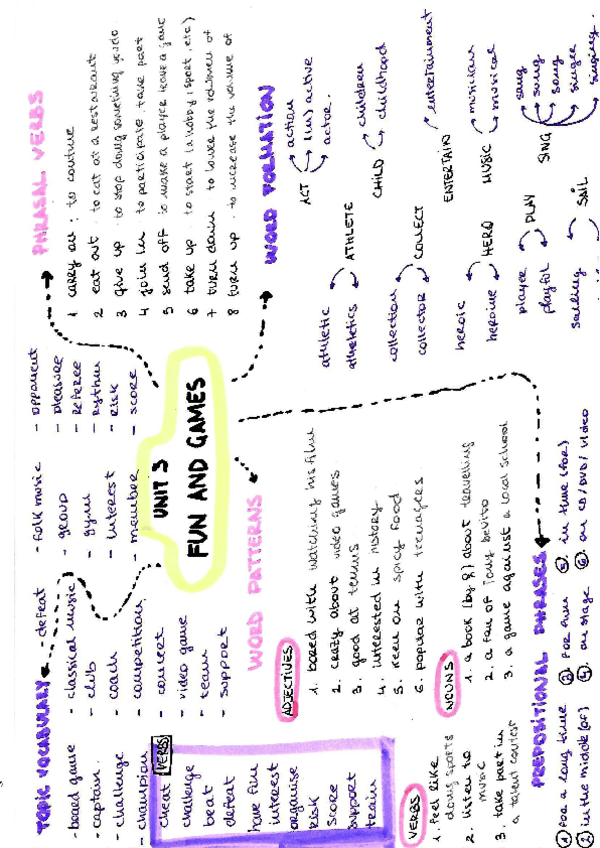 UNIT 3
FUN AND GAMES
TOPIC VOCABULARY
- board game
- captain
- challenge
- champion
- classical music
- club
- coach
- competition
- concert
- video game
- team
- support
- defeat
- folk music
- group
- gym
- interest
- member
- opponent
- pleasure
- referee
- rythm
- risk
- score
VERBS
cheat
challenge
beat
defeat
have fun
interest
organise
risk
score
support
train
PHRASAL VERBS
1 carry on : to continue
2 eat out : to eat at a restaurant
3 give up : to stop doing something you do
4 join in : to participate, take part
5 send off : to make a player leave a game
6 take up : to start (a hobby, sport, etc)
7 turn down : to lower the volumen of
8 turn up : to increase the volume of
WORD PATTERNS
ADJECTIVES
1. bored with watching his film
2. crazy about video games
3. good at tennis
4. interested in history
5. keen on spicy food
6. popular with teenagers
NOUNS
1. a book (by 8) about travelling
2. a fan of
3. a game against a local school
VERBS
1. feel like doing sports
2. listen to music
3. take part in a talent contest
WORD FORMATION
ACT
action
(in) active
actor.
athletic
athletics
ATHLETE
CHILD
children
childhood
collection
collector
COLLECT
ENTERTAIN
entertainment
heroic
heroine
HERO
MUSIC
musician
musical
player
playful
PLAY
SING
sang
sung
song
singer
singing.
sailing
SAIL
PREPOSITIONAL PHRASES
1 for a long time
2 in the middle (of)
3 for fun
4 on stage
5. in time (for)
6. on CD/DVD/video